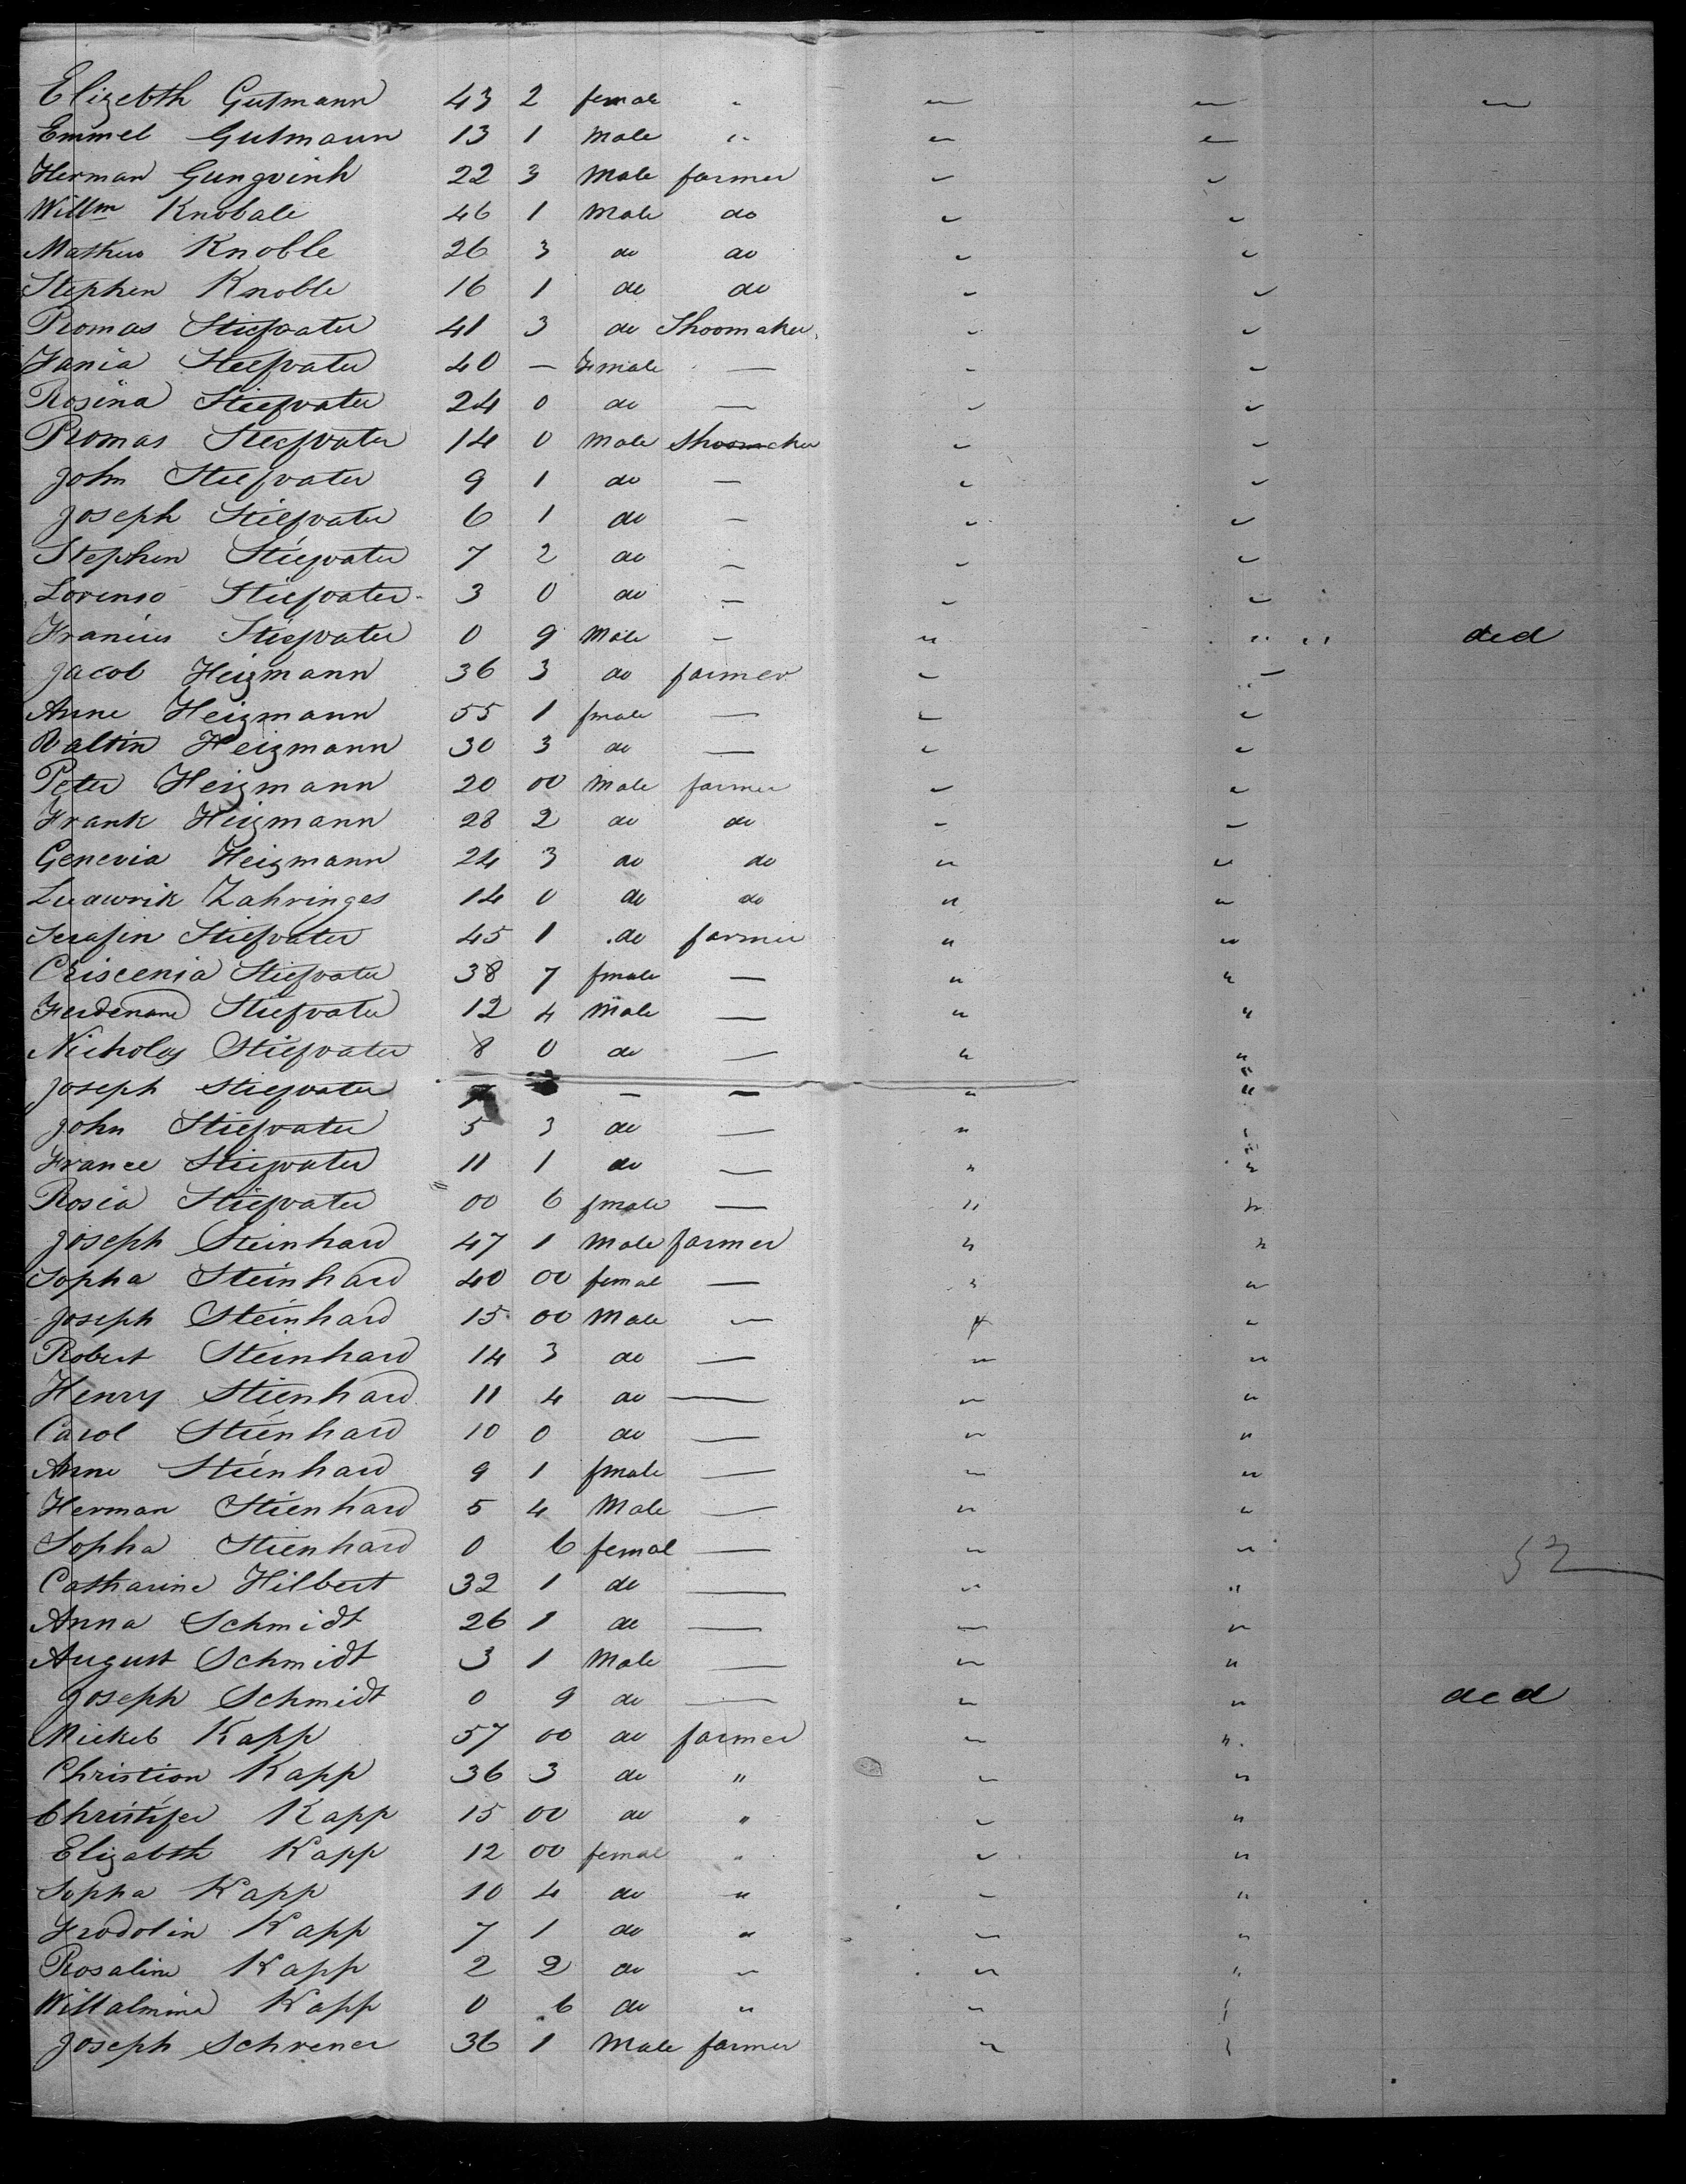 Elizebth Gutmann 43 2 female " " " "
Emmel Gutmann 13 1 Male " " "
Herman Gungvinh 22 3 Male farmer " "
Willm Knobale 46 1 Male do " "
Matheus Knoble 26 3 do do " "
Stephen Knoble 16 1 do do " "
Romas Stiefvater 41 3 do Shoomaker " "
Fania Stiefvater 40 — Female — " "
Rosina Stiefvater 24 0 do — " "
Romas Stiefvater 14 0 Male Shoomaker " "
John Stiefvater 9 1 do — " "
Joseph Stiefvater 6 1 do — " "
Stephen Stiefvater 7 2 do — " "
Lorenso Stiefvater 3 0 do — " "
Francis Stiefvater 0 9 Male — " " " ded
Jacob Heizmann 36 3 do farmer " "
Anne Heizmann 55 1 fmale — " "
Valtin Heizmann 30 3 do — " "
Peter Heizmann 20 00 Male farmer " "
Frank Heizmann 28 2 do do " "
Genevia Heizmann 24 3 do do " "
Ludwrik Zahringes 14 0 do do " "
Serafin Stiefvater 45 1 do farmer " "
Criscenia Stiefvater 38 7 fmale — " "
Ferdenand Stiefvater 12 4 Male — " "
Nicholas Stiefvater 8 0 do — " "
Joseph Stiefvater — — " "
John Stiefvater 5 3 do — " "
France Stiefvater 11 1 do — " "
Rosia Stiefvater 00 6 fmale — " "
Joseph Steinhard 47 1 Male farmer " "
Sopha Steinhard 40 00 femal — " "
Joseph Steinhard 15 00 Male — " "
Robert Steinhard 14 3 do — " "
Henry Stienhard 11 4 do — " "
Carol Stienhard 10 0 do — " "
Anne Stienhard 9 1 fmale — " "
Herman Stienhard 5 4 Male — " "
Sopha Stienhard 0 6 femal — " "
52
Catharine Hilbert 32 1 do — " "
Anna Schmidt 26 1 do — " "
August Schmidt 3 1 Male — " "
Joseph Schmidt 0 9 do — " " ded
Mickel Kapp 57 00 do farmer " "
Christion Kapp 36 3 do " " "
Christifer Kapp 15 00 do " " "
Elizabth Kapp 12 00 female " " "
Sopha Kapp 10 4 do " " "
Frodolin Kapp 7 1 do " " "
Rosaline Kapp 2 2 do " " "
Willalmina Kapp 0 6 do " " "
Joseph Schrener 36 1 Male farmer " "